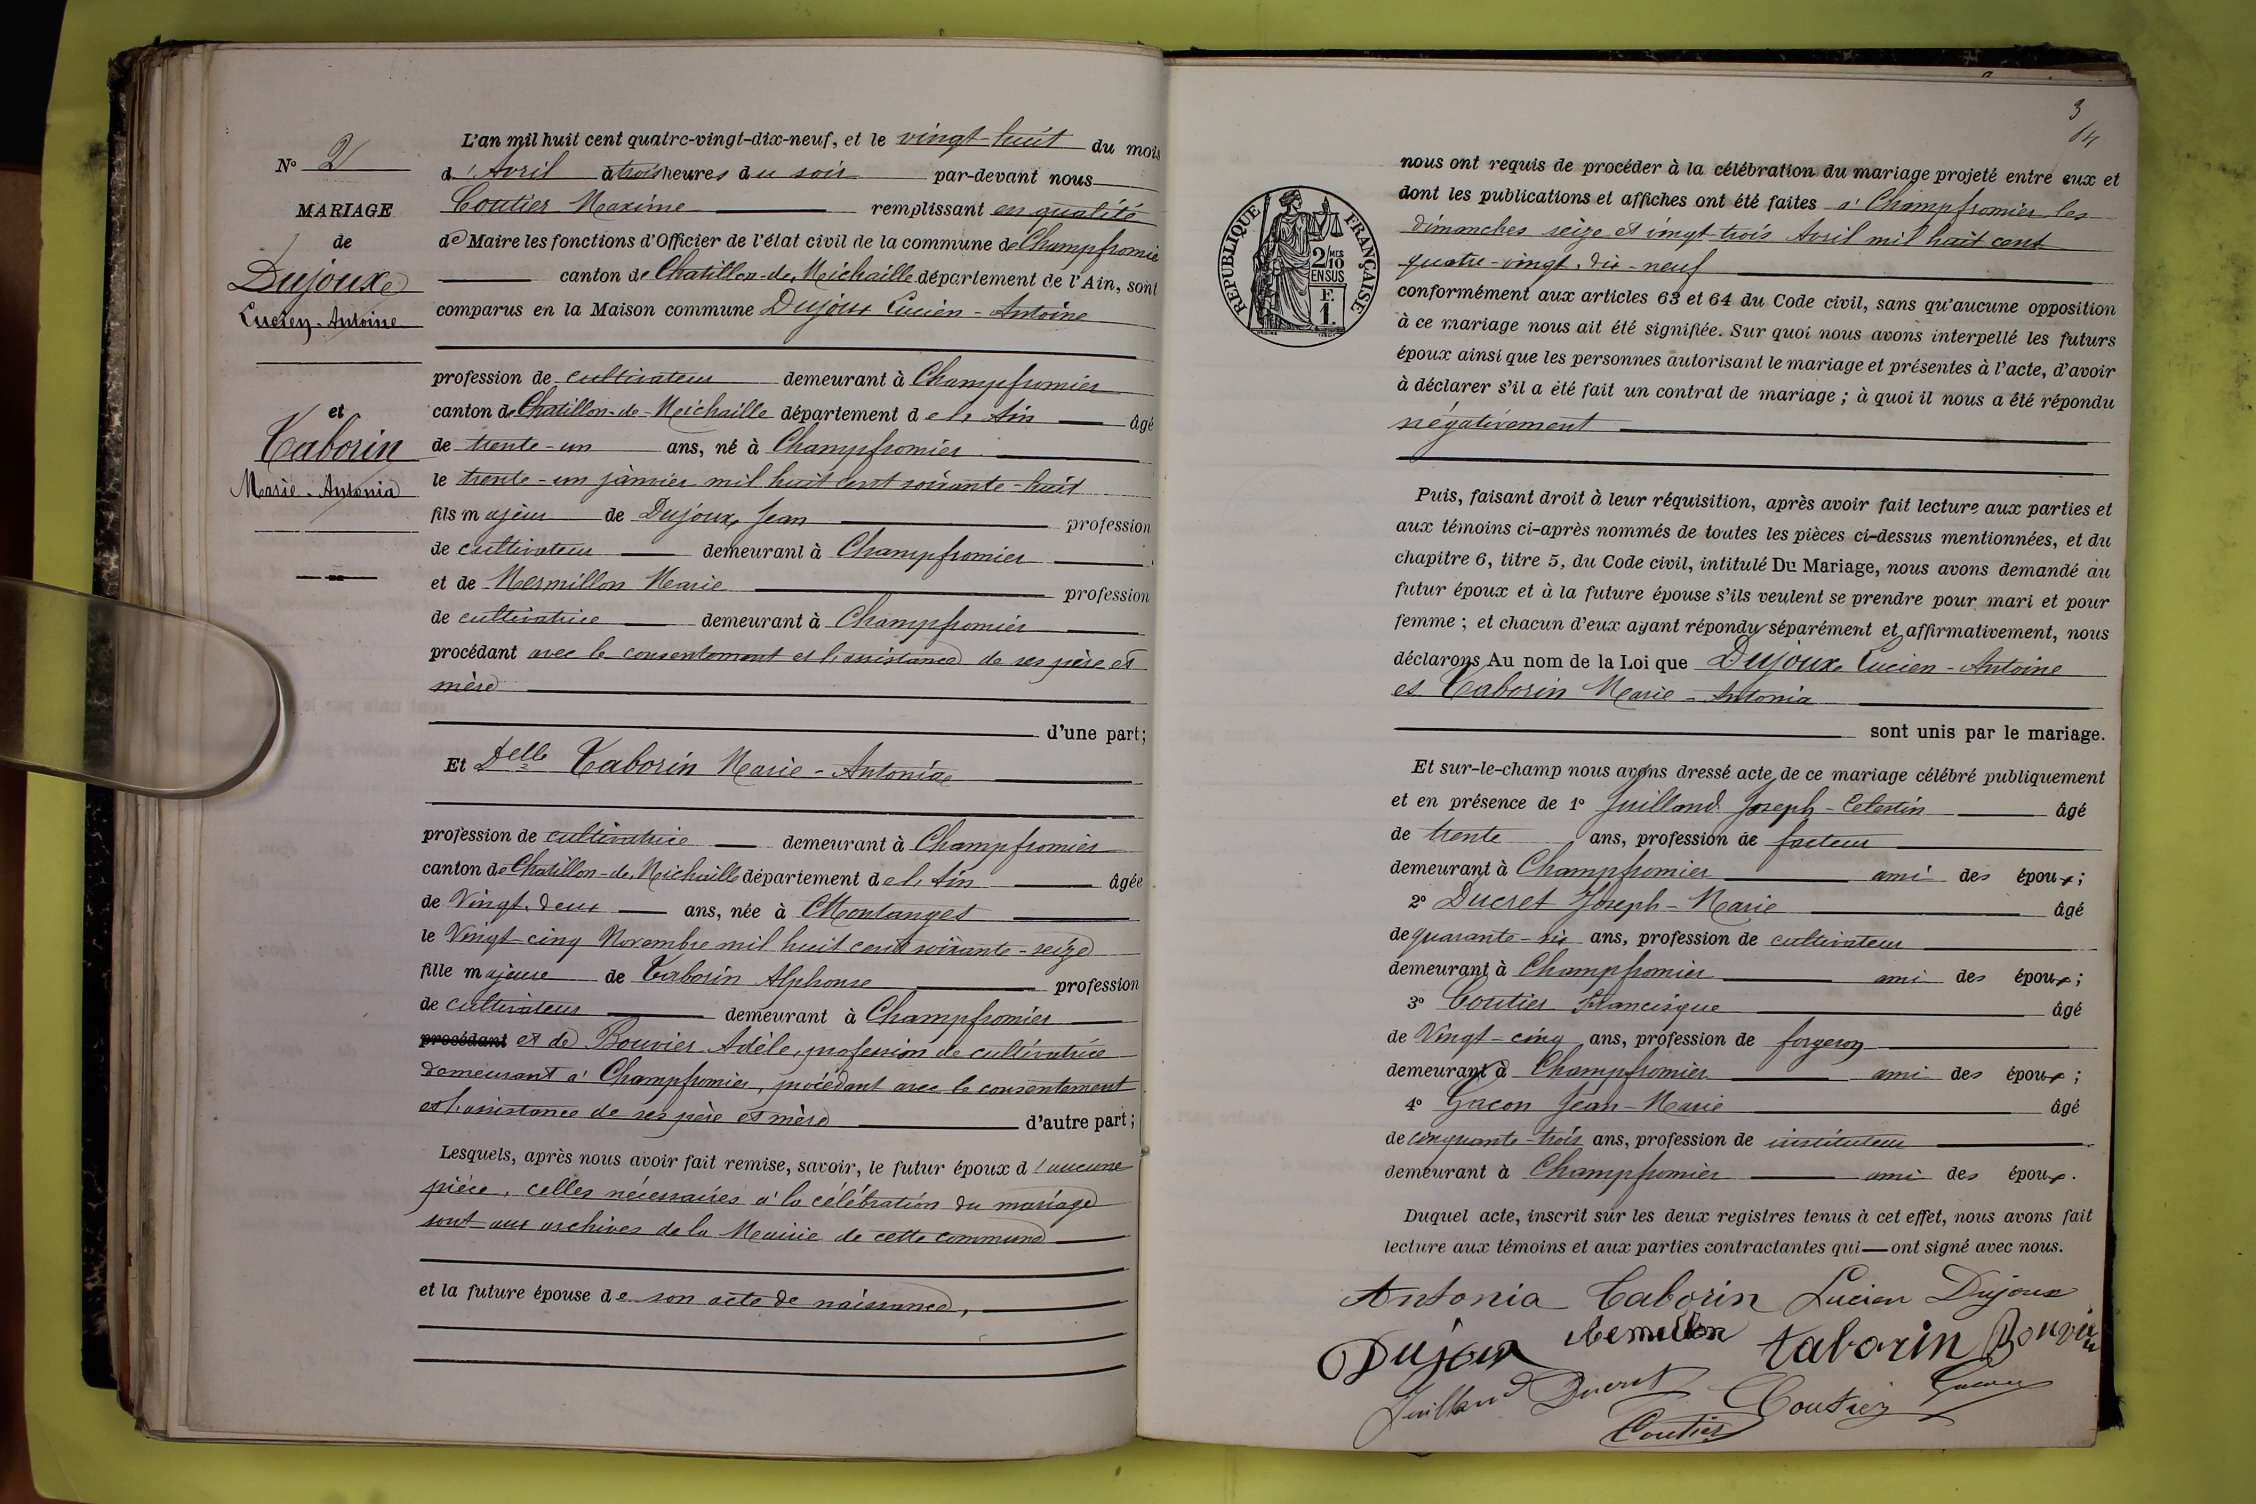 N° 2
MARIAGE
de
Dujoux
Lucien-Antoine
et
Taborin
Marie-Antonia
L'an mil huit cent quatre-vingt-dix-neuf, et le vingt-huit du mois
d'Avril à trois heures du soir par-devant nous
Coutier Maxime remplissant en qualité
de Maire les fonctions d'Officier de l'état civil de la commune de Champfromier
canton de Chatillon-de-Michaille département de l'Ain, sont
comparus en la Maison commune Dujoux Lucien-Antoine
profession de cultivateur demeurant à Champfromier
canton de Chatillon-de-Michaille département de l'Ain âgé
de trente-un ans, né à Champfromier
le trente-un janvier mil huit cent soixante-huit
fils majeur de Dujoux Jean profession
de cultivateur demeurant à Champfromier
et de Mermillon Marie profession
de cultivatrice demeurant à Champfromier
procédant avec le consentement et l'assistance de ses père et
mère
d'une part;
Et Delle Taborin Marie-Antonia
profession de cultivatrice demeurant à Champfromier
canton de Chatillon-de-Michaille département de l'Ain âgée
de Vingt-deux ans, née à Montanges
le Vingt-cinq Novembre mil huit cent soixante-seize
fille majeure de Taborin Alphonse profession
de cultivateur demeurant à Champfromier
procédant et de Bouvier Adèle, profession de cultivatrice
demeurant à Champfromier, procédant avec le consentement
et l'assistance de ses père et mère d'autre part;
Lesquels, après nous avoir fait remise, savoir, le futur époux d'aucune
pièce, celles nécessaires à la célébration du mariage
sont aux archives de la Mairie de cette commune
et la future épouse de son acte de naissance,
3
14
RÉPUBLIQUE FRANÇAISE
2/10
EN SUS
F.
1.
nous ont requis de procéder à la célébration du mariage projeté entre eux et
dont les publications et affiches ont été faites à Champfromier les
dimanches seize et vingt-trois Avril mil huit cent
quatre-vingt-dix-neuf
conformément aux articles 63 et 64 du Code civil, sans qu'aucune opposition
à ce mariage nous ait été signifiée. Sur quoi nous avons interpellé les futurs
époux ainsi que les personnes autorisant le mariage et présentes à l'acte, d'avoir
à déclarer s'il a été fait un contrat de mariage; à quoi il nous a été répondu
négativement
Puis, faisant droit à leur réquisition, après avoir fait lecture aux parties et
aux témoins ci-après nommés de toutes les pièces ci-dessus mentionnées, et du
chapitre 6, titre 5, du Code civil, intitulé Du Mariage, nous avons demandé au
futur époux et à la future épouse s'ils veulent se prendre pour mari et pour
femme; et chacun d'eux ayant répondu séparément et affirmativement, nous
déclarons Au nom de la Loi que Dujoux Lucien-Antoine
et Taborin Marie-Antonia
sont unis par le mariage.
Et sur-le-champ nous avons dressé acte de ce mariage célébré publiquement
et en présence de 1° Juilland Joseph-Celestin âgé
de trente ans, profession de facteur
demeurant à Champfromier ami des époux;
2° Ducret Joseph-Marie âgé
de quarante-six ans, profession de cultivateur
demeurant à Champfromier ami des époux;
3° Coutier Francisque âgé
de Vingt-cinq ans, profession de forgeron
demeurant à Champfromier ami des époux;
4° Gacon Jean-Marie âgé
de cinquante-trois ans, profession de instituteur
demeurant à Champfromier ami des époux.
Duquel acte, inscrit sur les deux registres tenus à cet effet, nous avons fait
lecture aux témoins et aux parties contractantes qui ont signé avec nous.
Antonia Taborin Lucien Dujoux
Dujoux taborin Bouvier
Juilland Ducret Coutier Gacon
Coutier